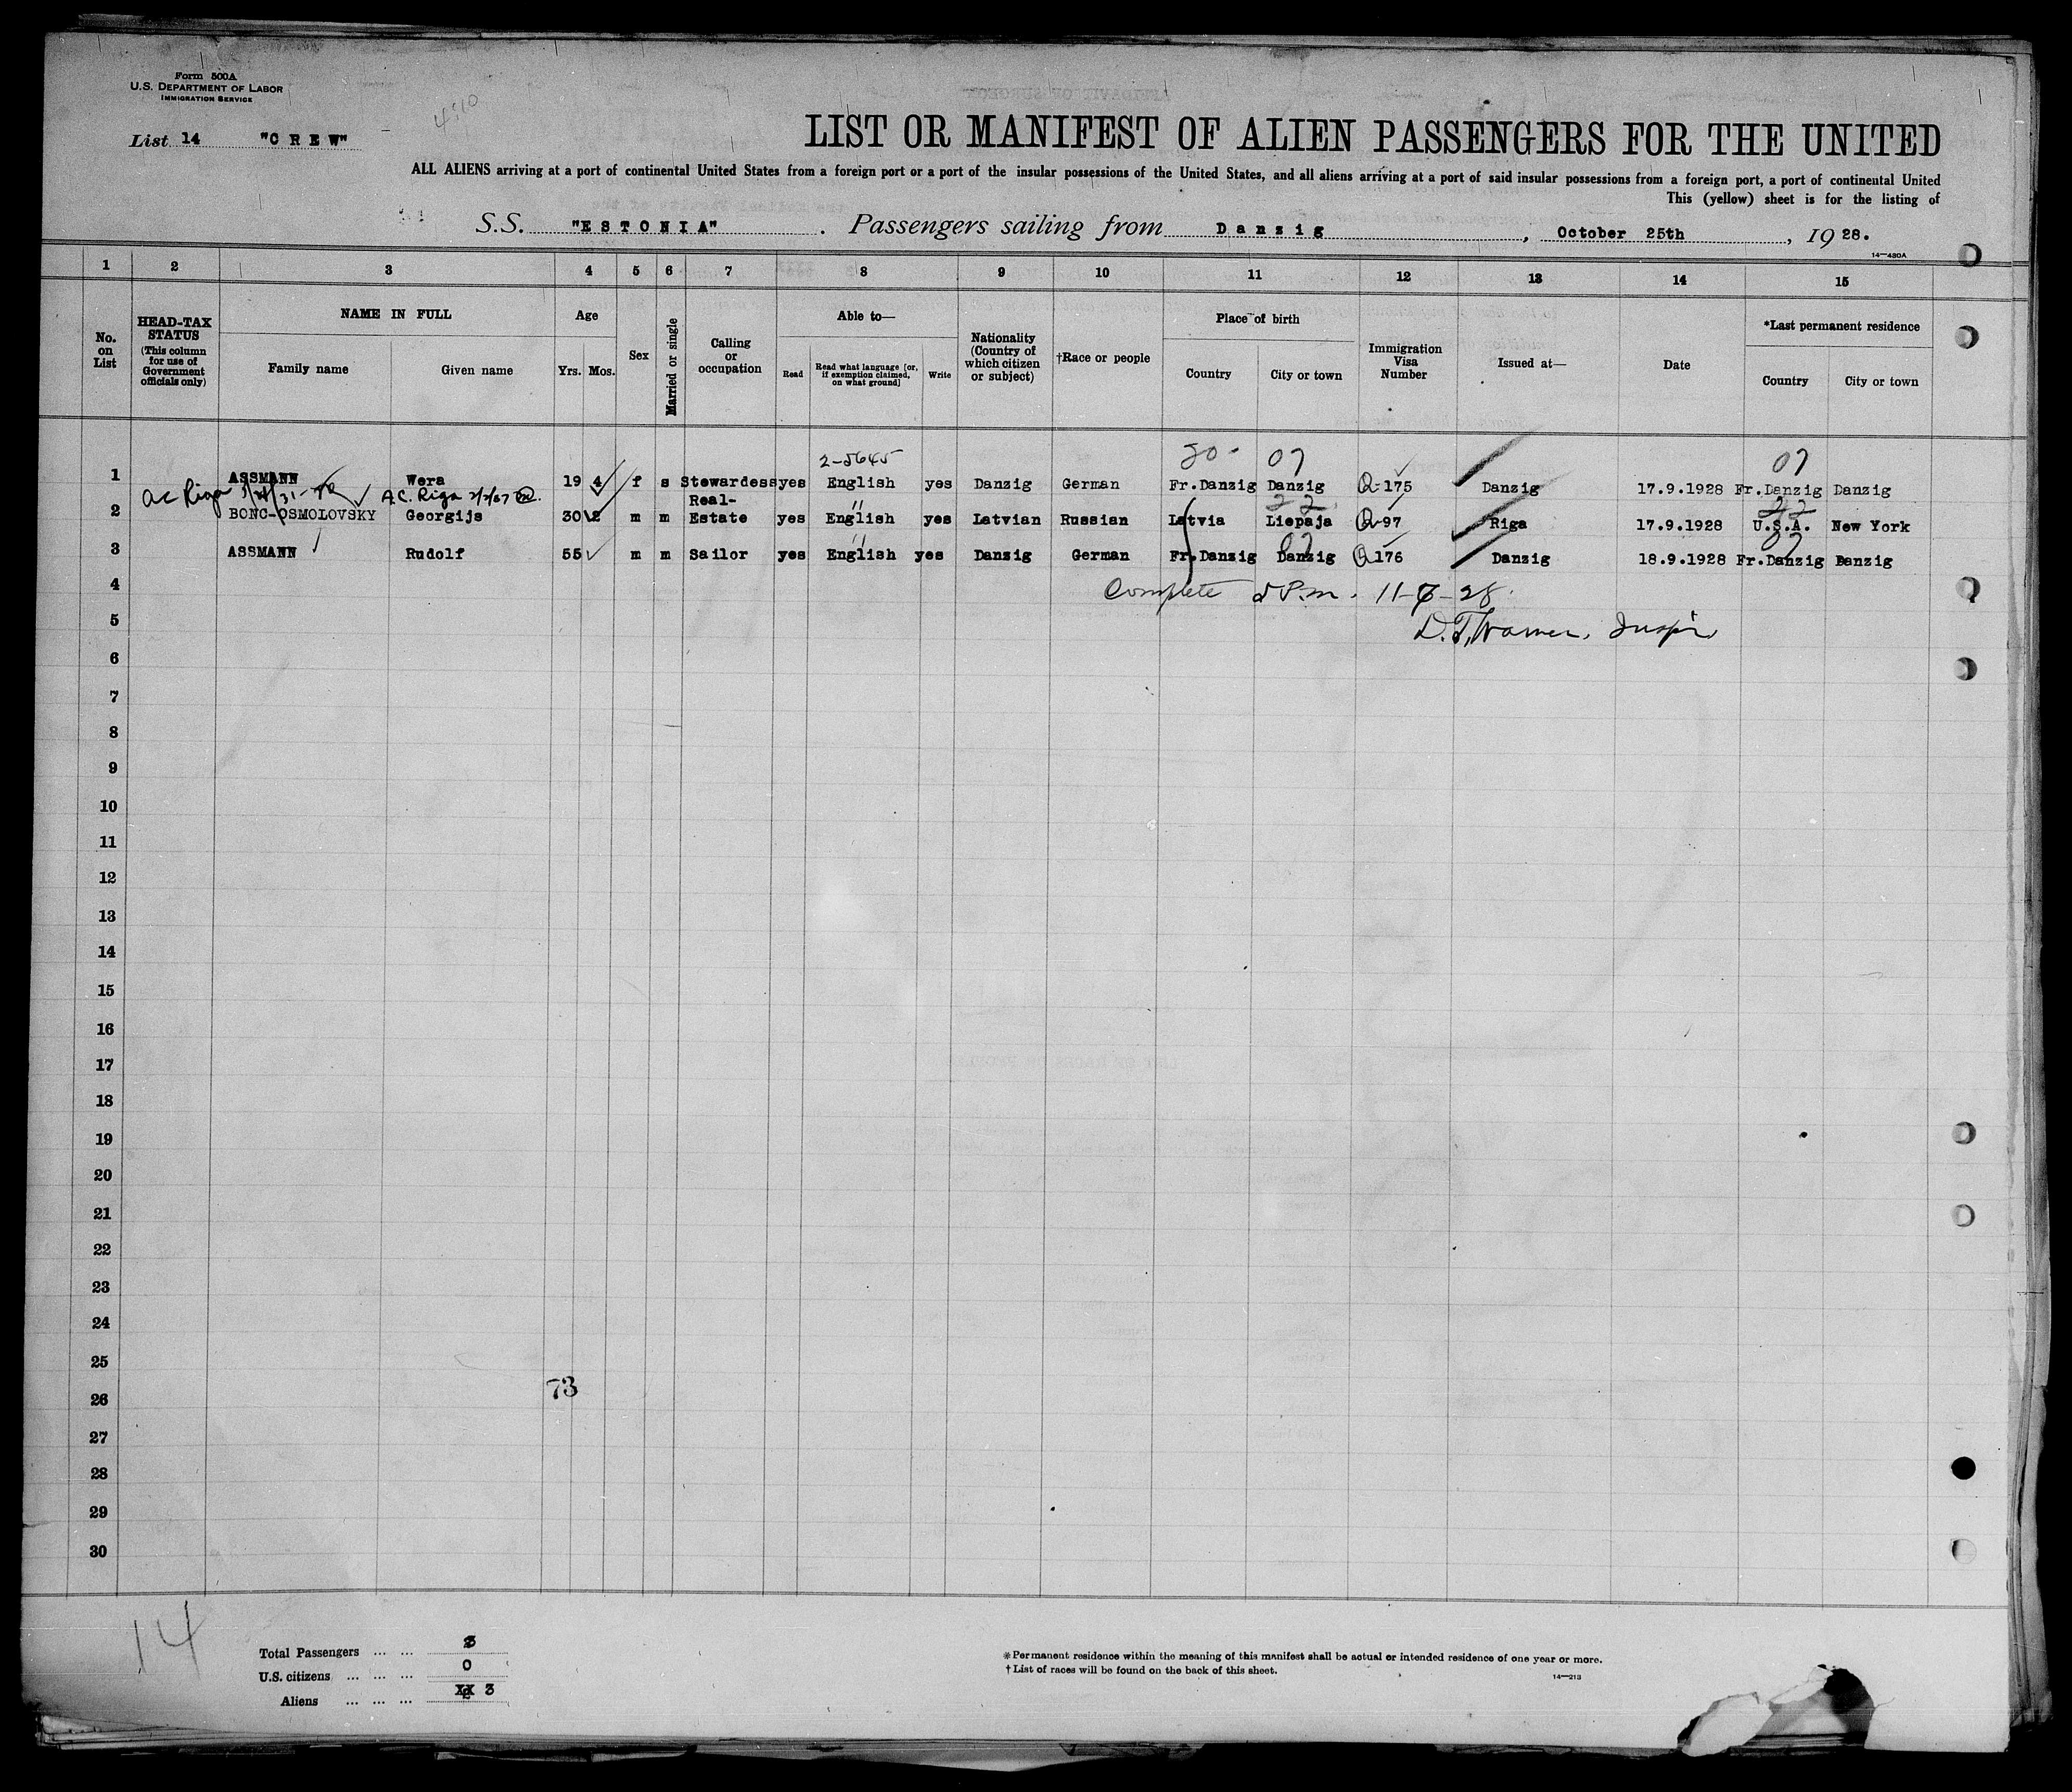 Form 500A
U.S. DEPARTMENT OF LABOR
IMMIGRATION SERVICE
List 14 "CREW"
LIST OR MANIFEST OF ALIEN PASSENGERS FOR THE UNITED
ALL ALIENS arriving at a port of continental United States from a foreign port or a port of the insular possessions of the United States, and all aliens arriving at a port of said insular possessions from a foreign port, a port of continental United
This (yellow) sheet is for the listing of
S.S. "ESTONIA". Passengers sailing from Danzig, October 25th, 1928.
14—430A
1 2 3 4 5 6 7 8 9 10 11 12 13 14 15
No. on List
HEAD-TAX STATUS (This column for use of Government officials only)
NAME IN FULL
Family name
Given name
Age
Yrs. Mos.
Sex
Married or single
Calling or occupation
Able to—
Read
Read what language [or, if exemption claimed, on what ground]
Write
Nationality (Country of which citizen or subject)
†Race or people
Place of birth
Country
City or town
Immigration Visa Number
Issued at—
Date
*Last permanent residence
Country
City or town
2-5645 07 07
1 ASSMANN Wera 19 4 f s Stewardess yes English yes Danzig German Fr.Danzig Danzig Q-175 Danzig 17.9.1928 Fr.Danzig Danzig
ac Riga A.C. Riga 22 22
2 BONC-OSMOLOVSKY Georgijs 30 m m Real-Estate yes English yes Latvian Russian Latvia Liepaja Q-97 Riga 17.9.1928 U.S.A. New York
07 07
3 ASSMANN Rudolf 55 m m Sailor yes English yes Danzig German Fr.Danzig Danzig Q176 Danzig 18.9.1928 Fr.Danzig Danzig
4 Complete 5 P.m. 11-6-28
5 D.T. Warner, Inspr
6
7
8
9
10
11
12
13
14
15
16
17
18
19
20
21
22
23
24
25
73
26
27
28
29
30
14
Total Passengers ... ... 3
U.S. citizens ... ... ... 0
Aliens ... ... ... 3
*Permanent residence within the meaning of this manifest shall be actual or intended residence of one year or more.
†List of races will be found on the back of this sheet.
14—213